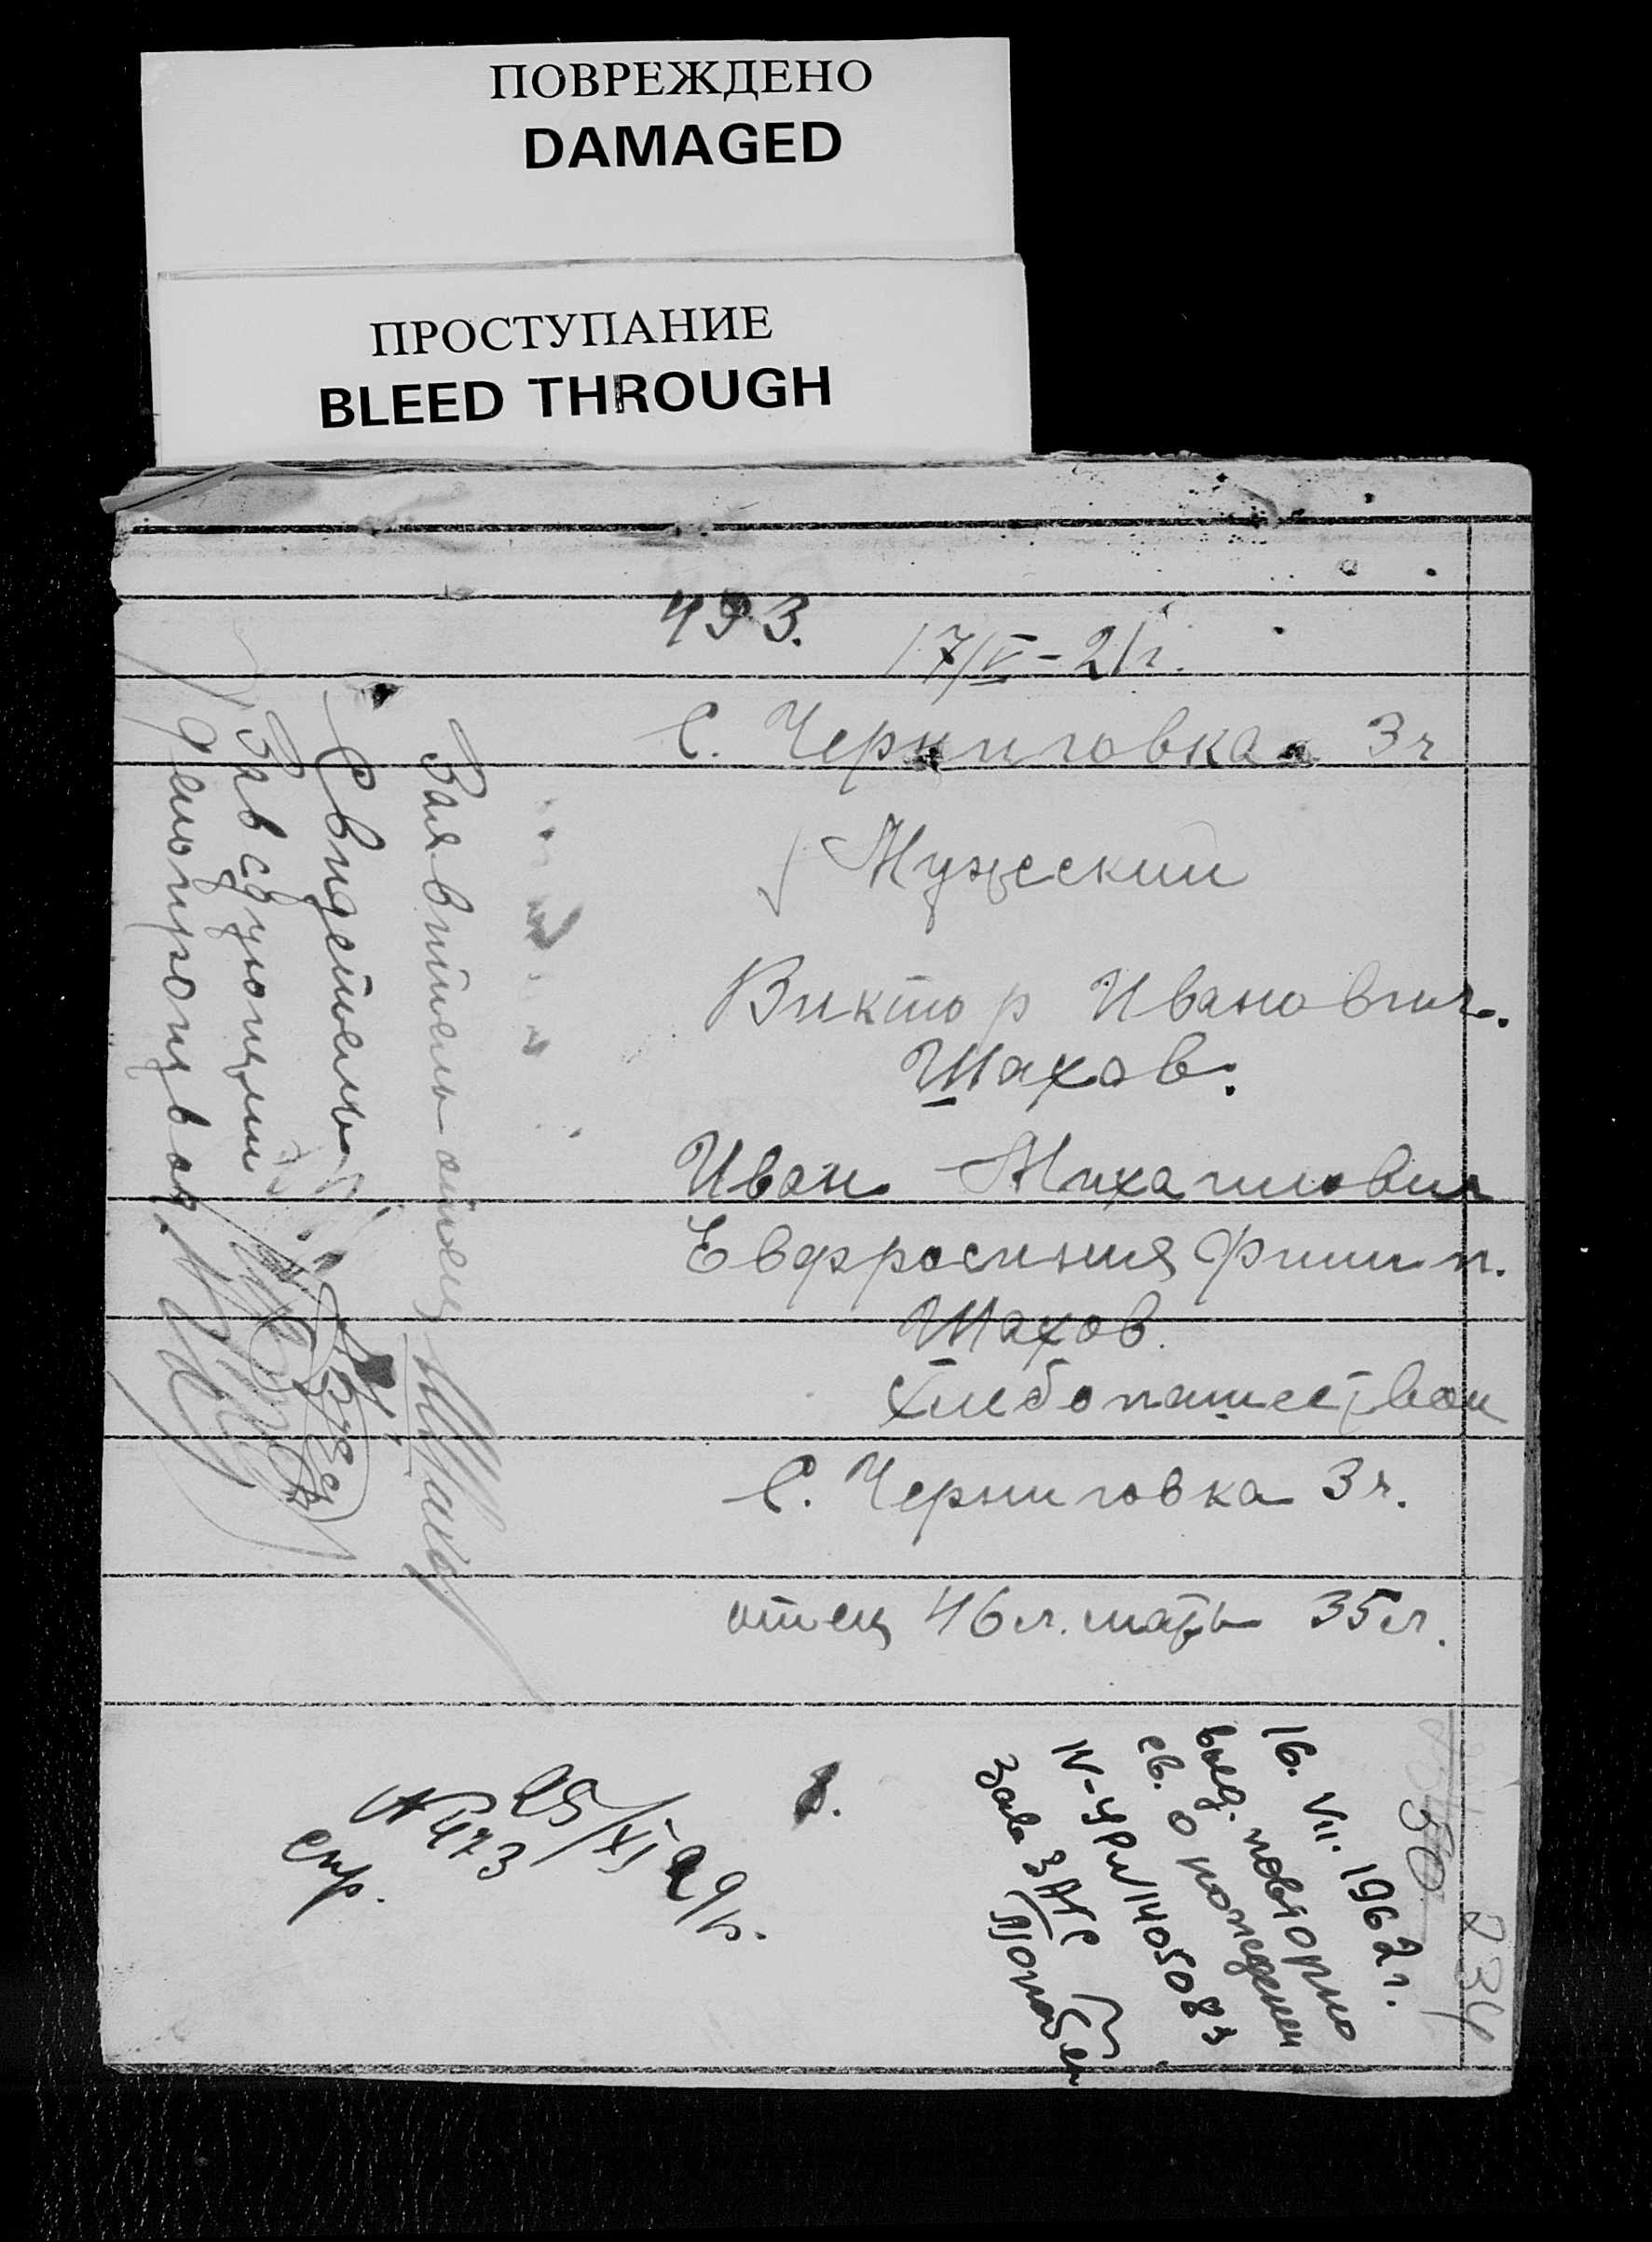 ПОВРЕЖДЕНО
DAMAGED
ПРОСТУПАНИЕ
BLEED THROUGH
493.
17/V-21г.
С. Черниговка 3ч
Мужеский
Виктор Иванович.
Шахов.
Иван Михаилович
Евфросиния Филип.
Шахов.
Хлебопашеством
С. Черниговка 3ч.
отец 46 л. мать 35 л.
Заявитель отец Шахов
Свидетель
Зав сдующий
Делопроизвод.
25/XI 29г.
№ 473
спр.
8.
16. VII. 1962 г.
выд. повторно
св. о рождении
IV-УР №1405083
Зав ЗАГС
50
234